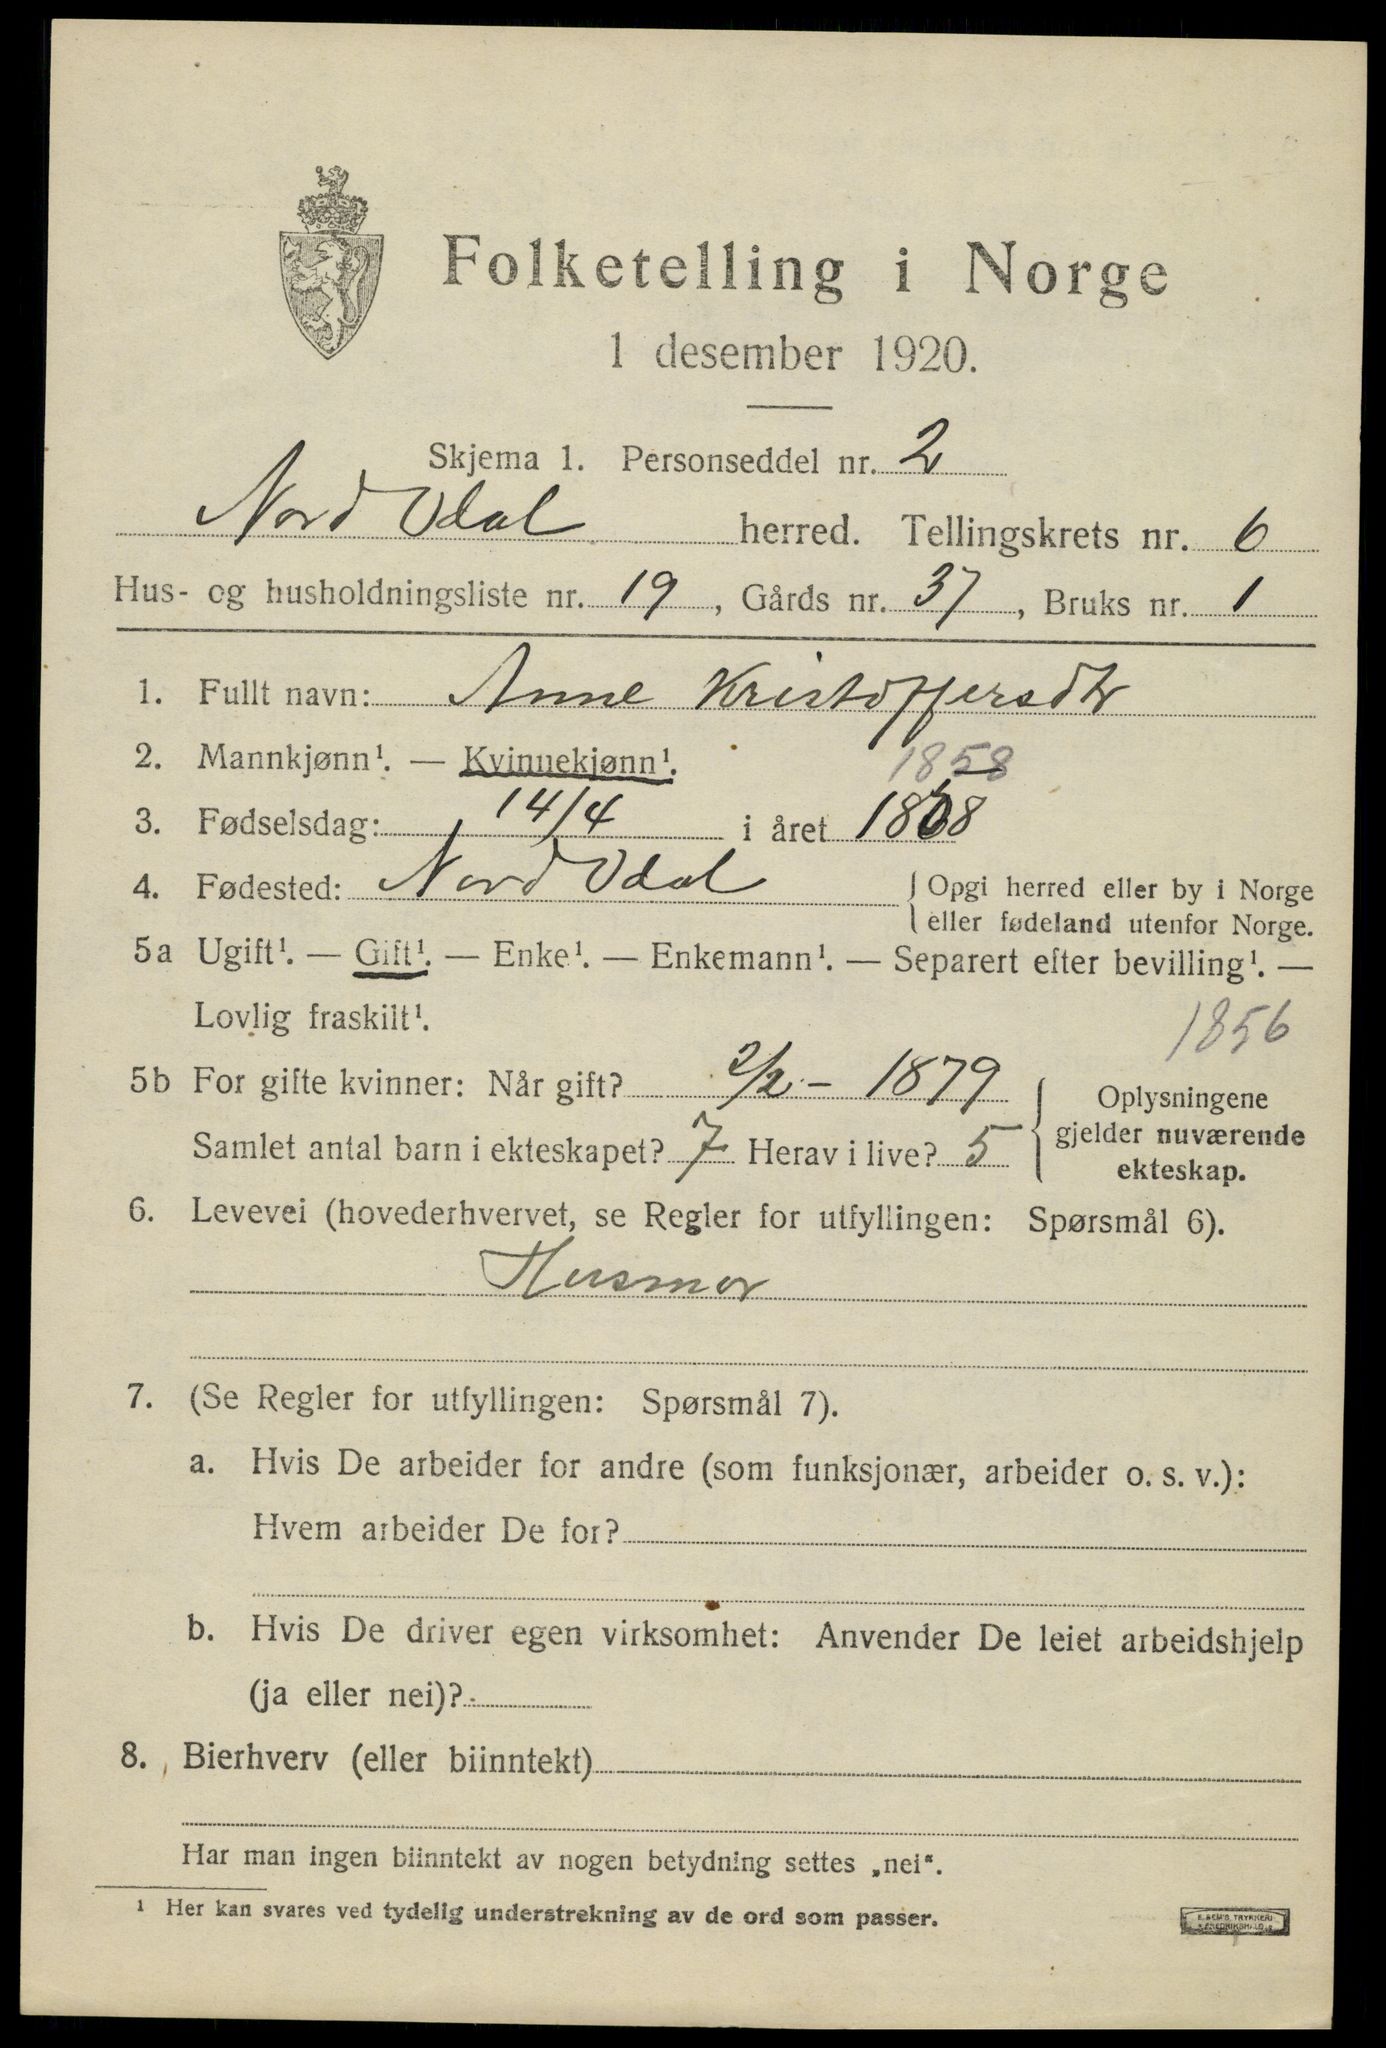 Folketelling i Norge
1 desember 1920.
Skjema 1. Personseddel nr. 2
Nord Odal herred. Tellingskrets nr. 6
Hus- og husholdningsliste nr. 19, Gårds nr. 37, Bruks nr. 1
1. Fullt navn: Anne Kristoffersdtr
2. Mannkjønn¹. — Kvinnekjønn¹.
1858
3. Fødselsdag: 14/4 i året 1858
4. Fødested: Nord Odal { Opgi herred eller by i Norge
eller fødeland utenfor Norge.
5a Ugift¹. — Gift¹. — Enke¹. — Enkemann¹. — Separert efter bevilling¹. —
Lovlig fraskilt¹.
1856
5b For gifte kvinner: Når gift? 2/2 – 1879
Samlet antal barn i ekteskapet? 7 Herav i live? 5
{ Oplysningene
gjelder nuværende
ekteskap.
6. Levevei (hovederhvervet, se Regler for utfyllingen: Spørsmål 6).
Husmor
7. (Se Regler for utfyllingen: Spørsmål 7).
a. Hvis De arbeider for andre (som funksjonær, arbeider o. s. v.):
Hvem arbeider De for?
b. Hvis De driver egen virksomhet: Anvender De leiet arbeidshjelp
(ja eller nei)?
8. Bierhverv (eller biinntekt)
Har man ingen biinntekt av nogen betydning settes „nei“.
¹ Her kan svares ved tydelig understrekning av de ord som passer.
E. SEM'S TRYKKERI
FREDRIKSHALD